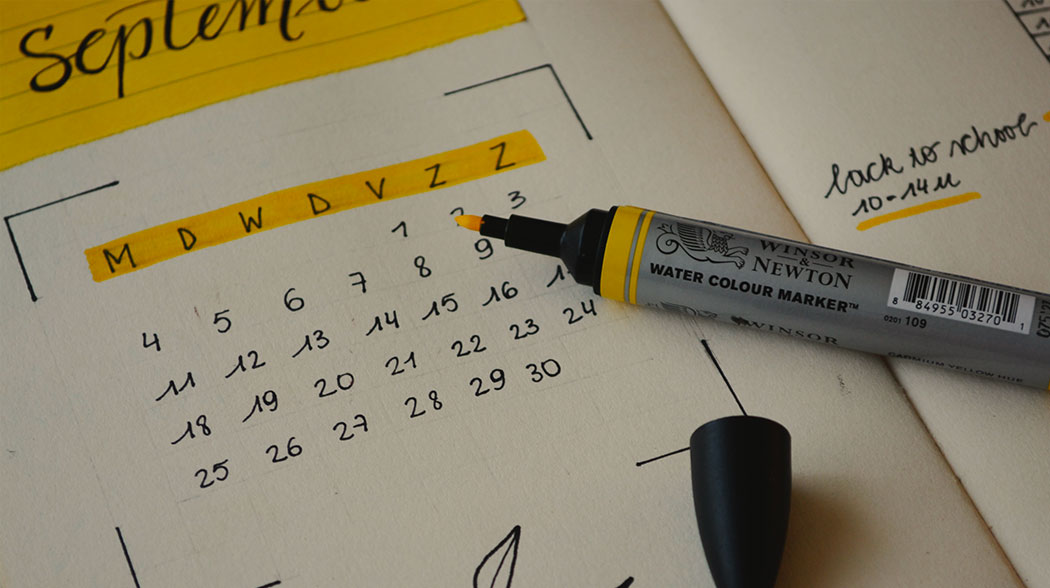 Septem
M D W D V Z Z
1 2 3
4 5 6 7 8 9
11 12 13 14 15 16
18 19 20 21 22 23 24
25 26 27 28 29 30
back to school
10-14u
WINSOR
&
NEWTON
WATER COLOUR MARKER™
8 84955 03270 1
0201 109
WINSOR
CADMIUM YELLOW HUE